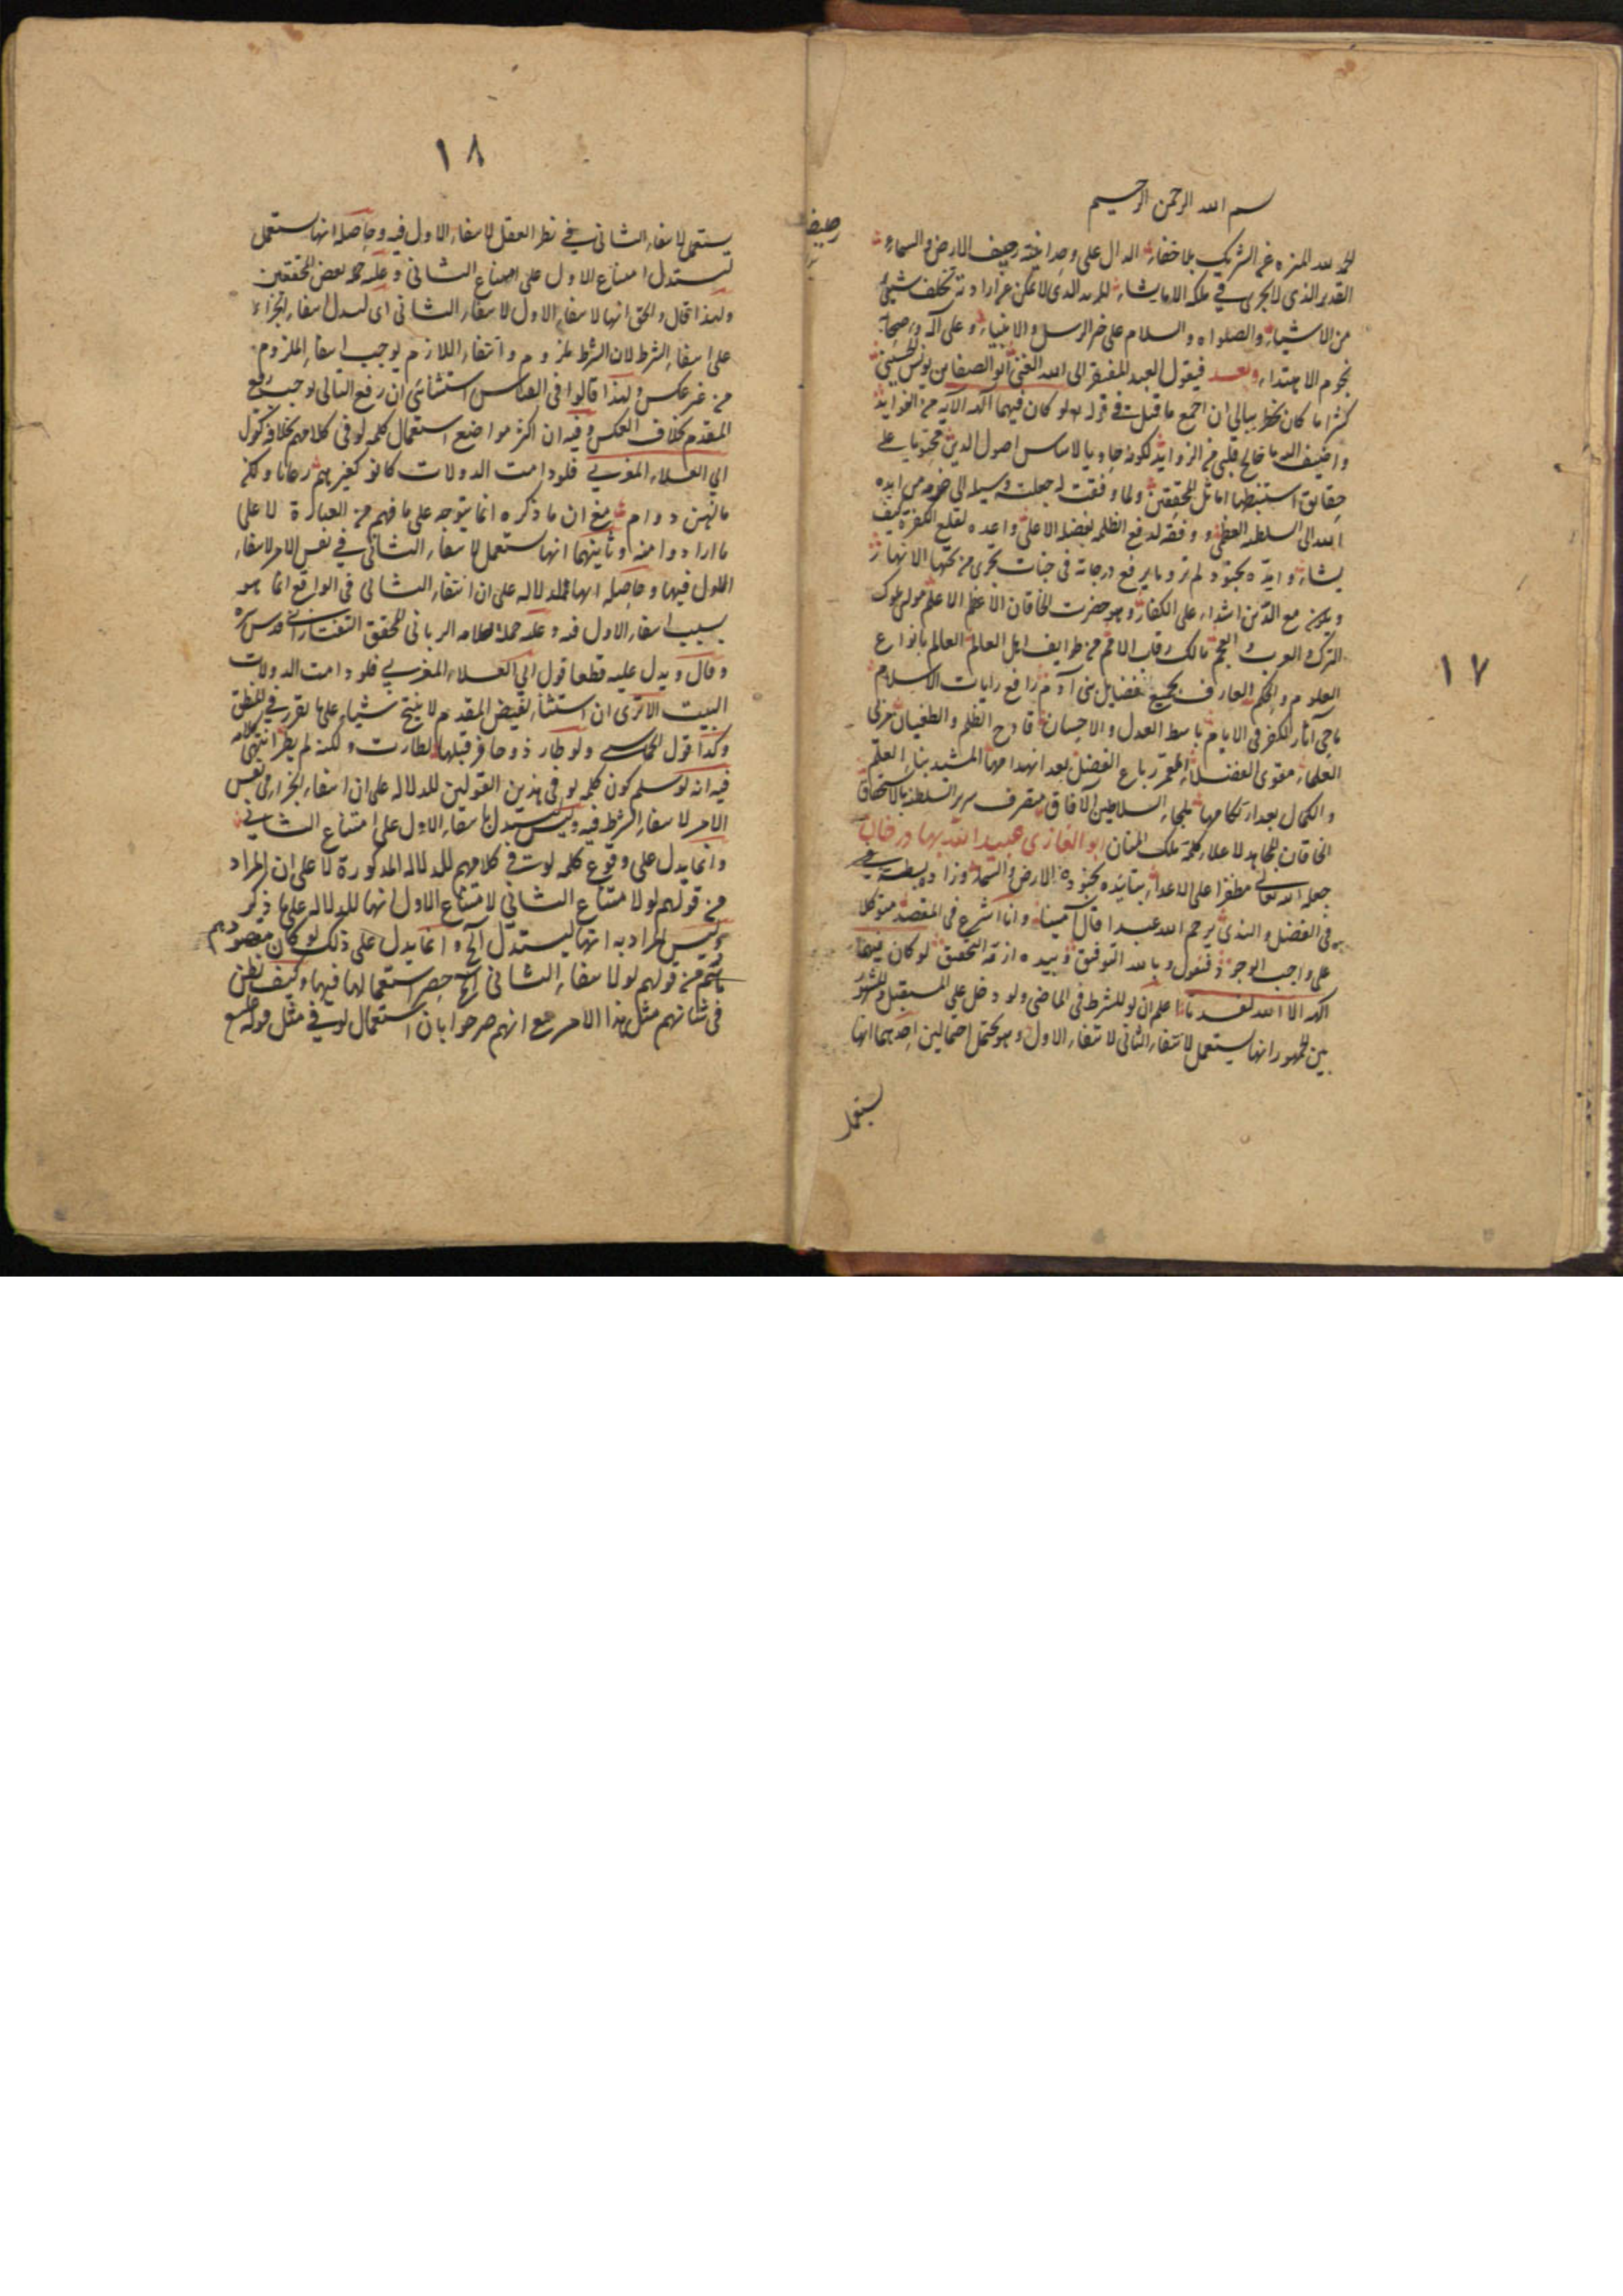 بسم الله الرحمن الرحيم
الحمد لله المنزه عن الشريك بلا خفاء الدال على وحدانيته رصيف الارض والسماء
القدير الذى لا يجرى في ملكه الا ما يشاء المريد الذى لا يمكن عن ارادته تخلف شيئ
من الاشياء والصلواه والسلام على خير الرسل والانبياء وعلى آله وصحابه
نجوم الاهتداء وبعد فيقول العبد المفتقر الى الله الغنى ابو الصفا بن يونس الحسينى
كثيرا ما كان يخطر ببالى ان اجمع ما قيل فى قوله لو كان فيهما آلهه الآيه من الفوايد
واضيف اليه ما خالج قلبى من الزوايد لكونه حاويا لاساس اصول الدين محتويا على
حقائق استنبطها اماثل المحققين ولما وفقت له جعلته وسيله الى من ايده
الله الى السلطنه العظمى ووفقه لدفع الظلمه بفضله الاعلى واعده لقلع الكفرة كيف
يشاء وايده بجنود لم تروها ورفع درجاته فى جنات تجرى من تحتها الانهار
مع الذين اشداء على الكفار وهو حضرت الخاقان الاعظم الاعلم مولى ملوك
الترك والعرب والعجم مالك رقاب الامم من طوايف اهل العالم العالم بانواع
العلوم والحكم العارف بجميع فضايل بنى آدم رافع رايات الاسلام
ماحى آثار الكفر فى الايام باسط العدل والاحسان قادح الظلم والطغيان مربى
العلماء مقوى الفضلاء المعمر رباع الفضل بعد انهدامها المشيد بناء العلم
والكمال بعد ملجاء السلاطين الآفاق متصرف سرير السلطنه بالاستحقاق
الخاقان المجاهد لاعلاء كلمة ملك المنان ابو الغازى عبيد الله بهادر خان
جعله الله تعالى مظفرا على الاعداء بتائيده بجنوده الارض والسماء وزاده بسطة
فى الفضل والندى يرحم الله عبدا قال آمينا وانا اشرع فى المقصد متوكلا
على واجب الوجود فنقول وبالله التوفيق وبيده ازمة التحقيق لو كان فيهما
آلهه الا الله لفسدتا اعلم ان لو للشرط فى الماضى ولو دخل على المستقبل والمشهور
بين الجمهور انها يستعمل لانتفاء الثانى لانتفاء الاول وهو يحتمل احتمالين احدهما انها
يستعمل
١٧
١٨
يستعمل لانتفاء الثانى في نظر العقل لانتفاء الاول فيه وحاصله انها يستعمل
ليستدل امتناع الاول على امتناع الثانى وعليه حمله بعض المحققين
ولهذا قال والحق انها لانتفاء الاول لانتفاء الثانى اى ليدل انتفاء الجزاء
على انتفاء الشرط لان الشرط ملزوم وانتفاء اللازم يوجب انتفاء الملزوم
من غير عكس ولهذا قالوا فى القياس استثنائى ان رفع التالى يوجب رفع
المقدم بخلاف العكس وفيه ان اكثر مواضع استعمال كلمه لو فى كلامهم بخلافه كقول
ابي العلاء المغربي فلو دامت الدولات كانوا كغيرهم رعايا ولكن
ما لهن دوام مع ان ما ذكره انما يتوجه على ما فهم من العبارة لا على
ما ارادوا منه وثانيهما انها يستعمل لانتفاء الثانى في نفس الامر لانتفاء
الاول فيها وحاصله انها للدلاله على ان انتفاء الثانى فى الواقع انما هو
بسبب انتفاء الاول فيه وعليه حمله الربانى المحقق التفتازانى قدس سره
وقال ويدل عليه قطعا قول ابي العلاء المغربي فلو دامت الدولات
البيت الا ترى ان استثناء نقيض المقدم لا ينتج شياء على ما تقرر في المنطق
وكذا قول الحماسى ولو طار ذو حافر قبلها لطارت ولكنه لم يطر انتهى كلامه
فيه انه لو سلم كون كلمه لو فى هذين القولين للدلاله على ان انتفاء الجزاء فى نفس
الامر لانتفاء الشرط فيه وليس يستدل بانتفاء الاول على امتناع الثانى
وانما يدل على وقوع كلمه لو في كلامهم للدلاله المذكورة لا على ان المراد
من قولهم لو لامتناع الثانى لامتناع الاول انها للدلاله على ما ذكر
وليس المراد به انها ليستدل الخ وانما يدل على ذلك لو كان مقصودهم
من قولهم لو لانتفاء الثانى الخ حصر استعمالها فيها وكيف يظن
فى شانهم مثل هذا الامر مع انهم صرحوا بان استعمال لو في مثل قوله